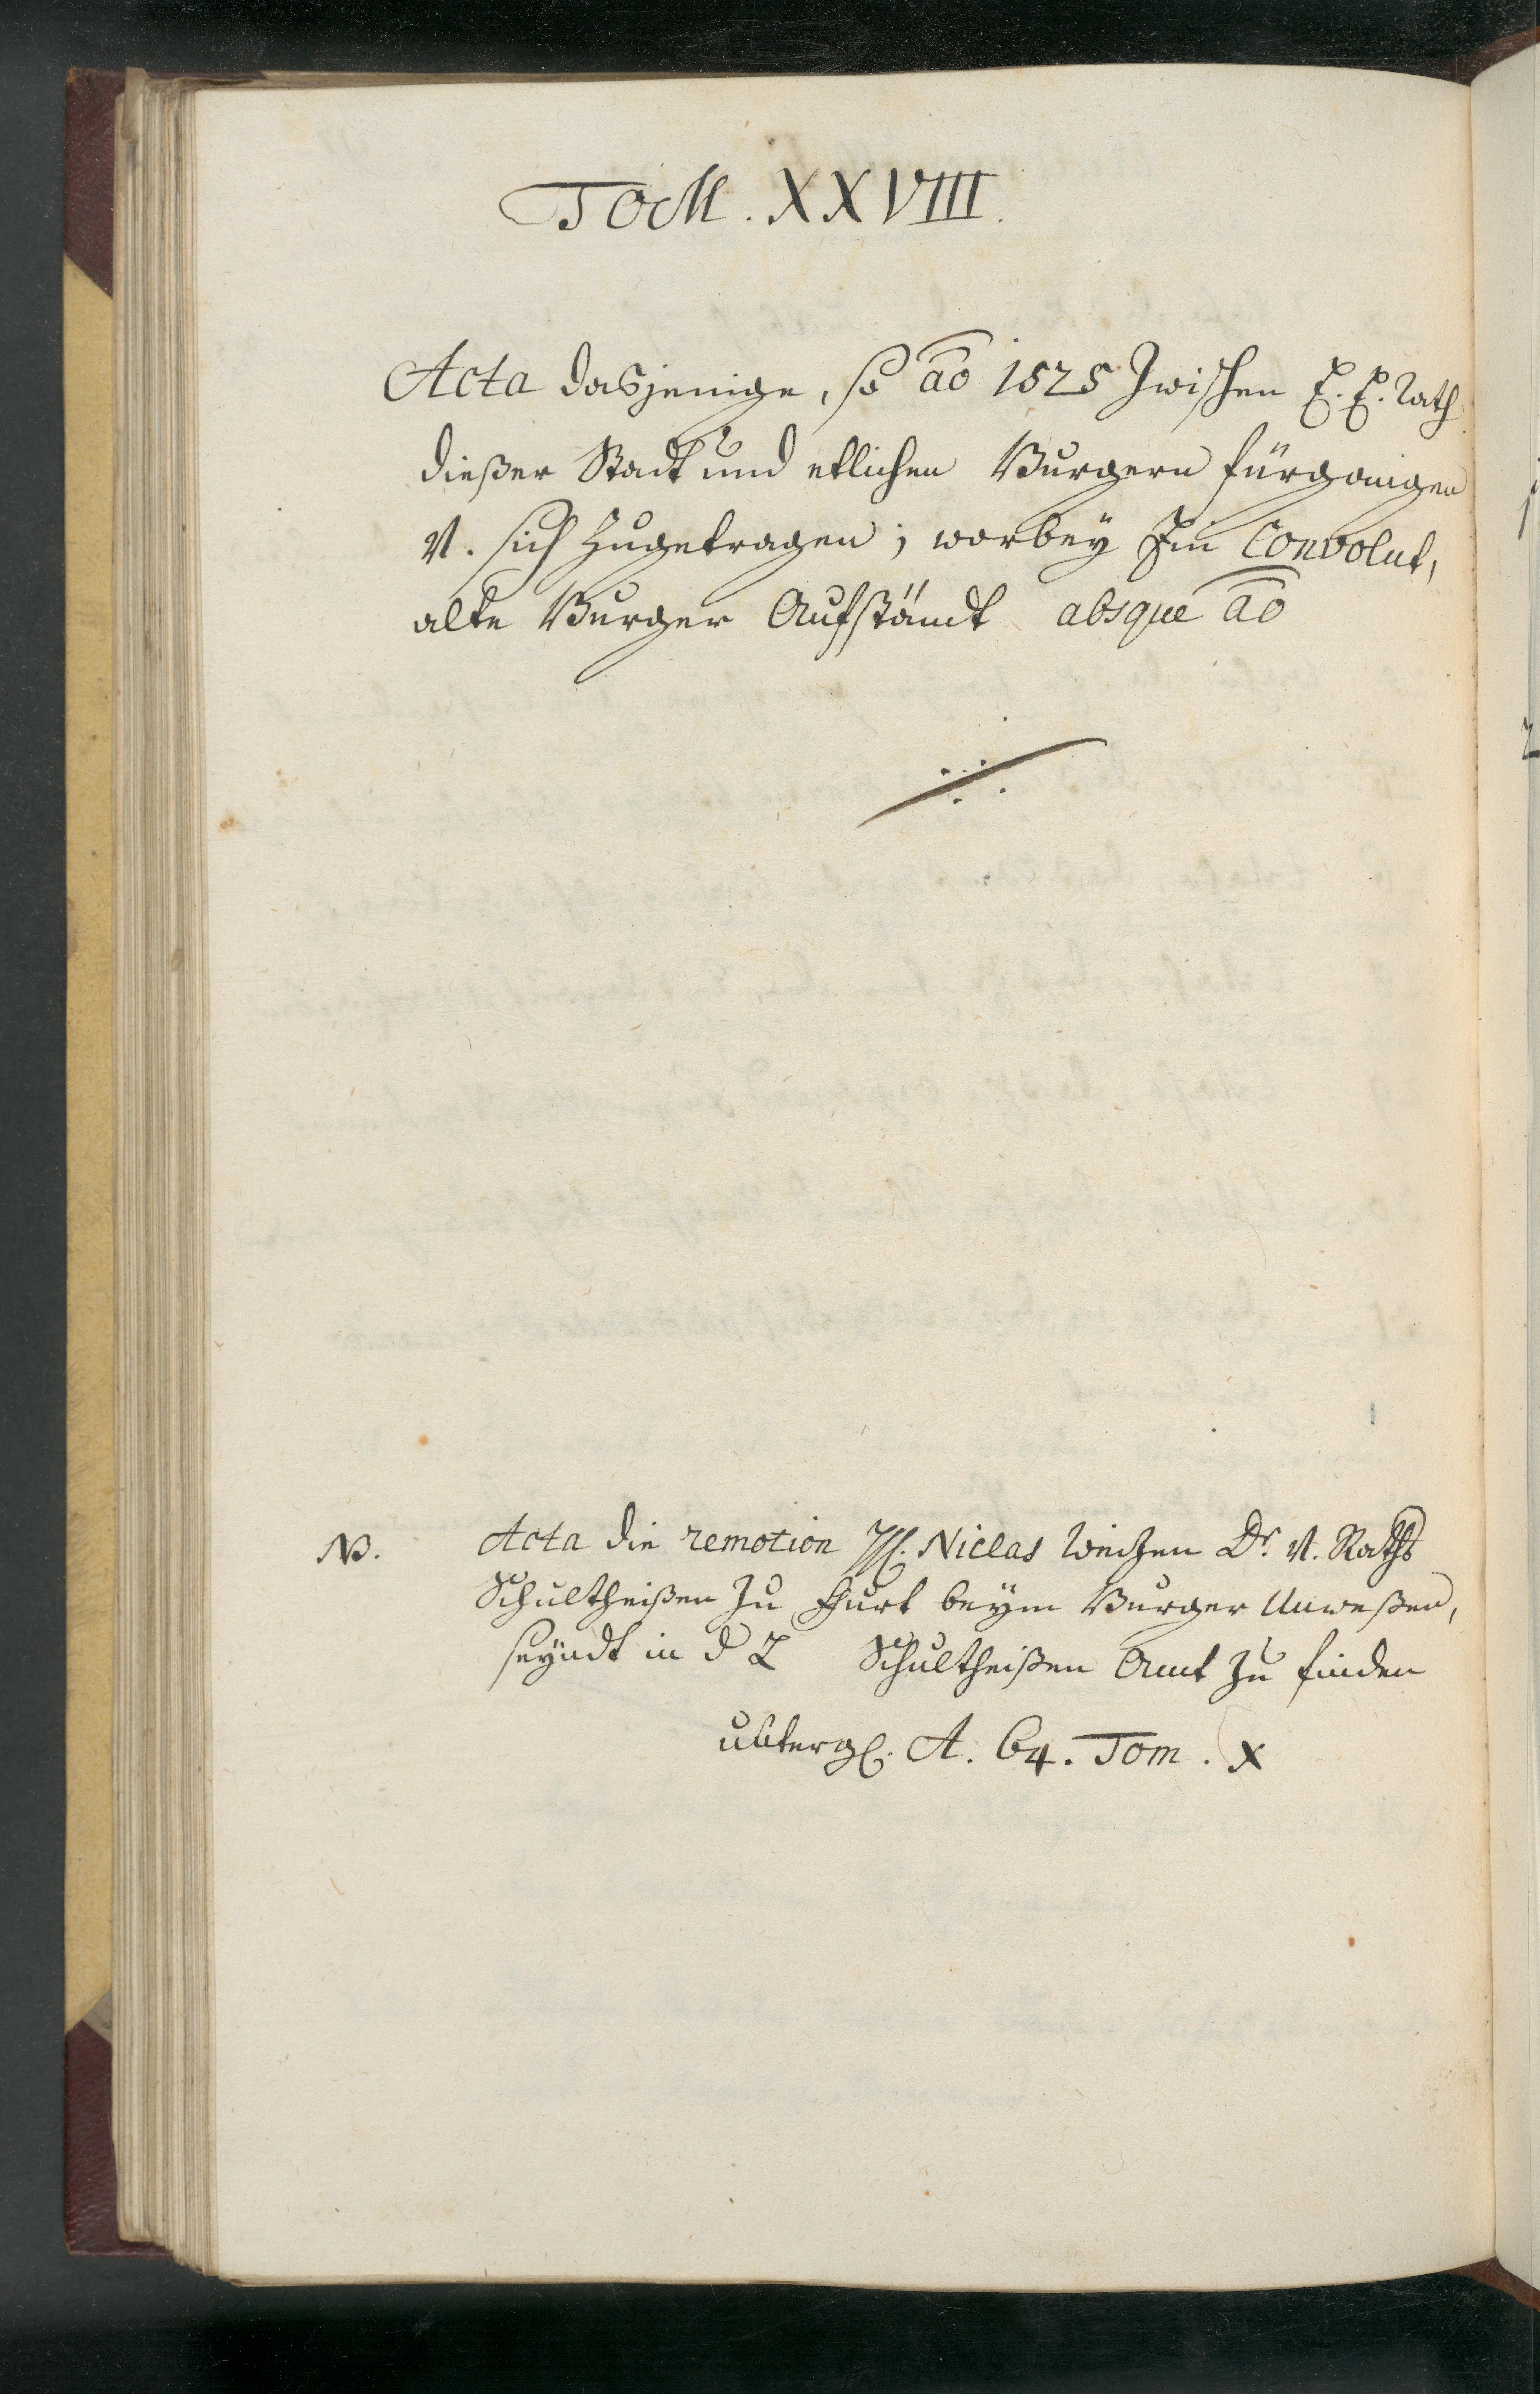 Tom. XXVIII.
Acta dasjenige, so aō 1525 zwischen E. E. Rath
dießer Stadt und etlichen Burgern fürgangen
V. sich zugetragen; worbey Ein Convolut,
alte Burger Aufständt absque aō
NB. Acta die remotion H. Niclas Dr. V. Raths
Schultheißen zu beym Burger Unweßen,
seyndt in d Schultheißen Amt zu finden
A. 64. Tom. X